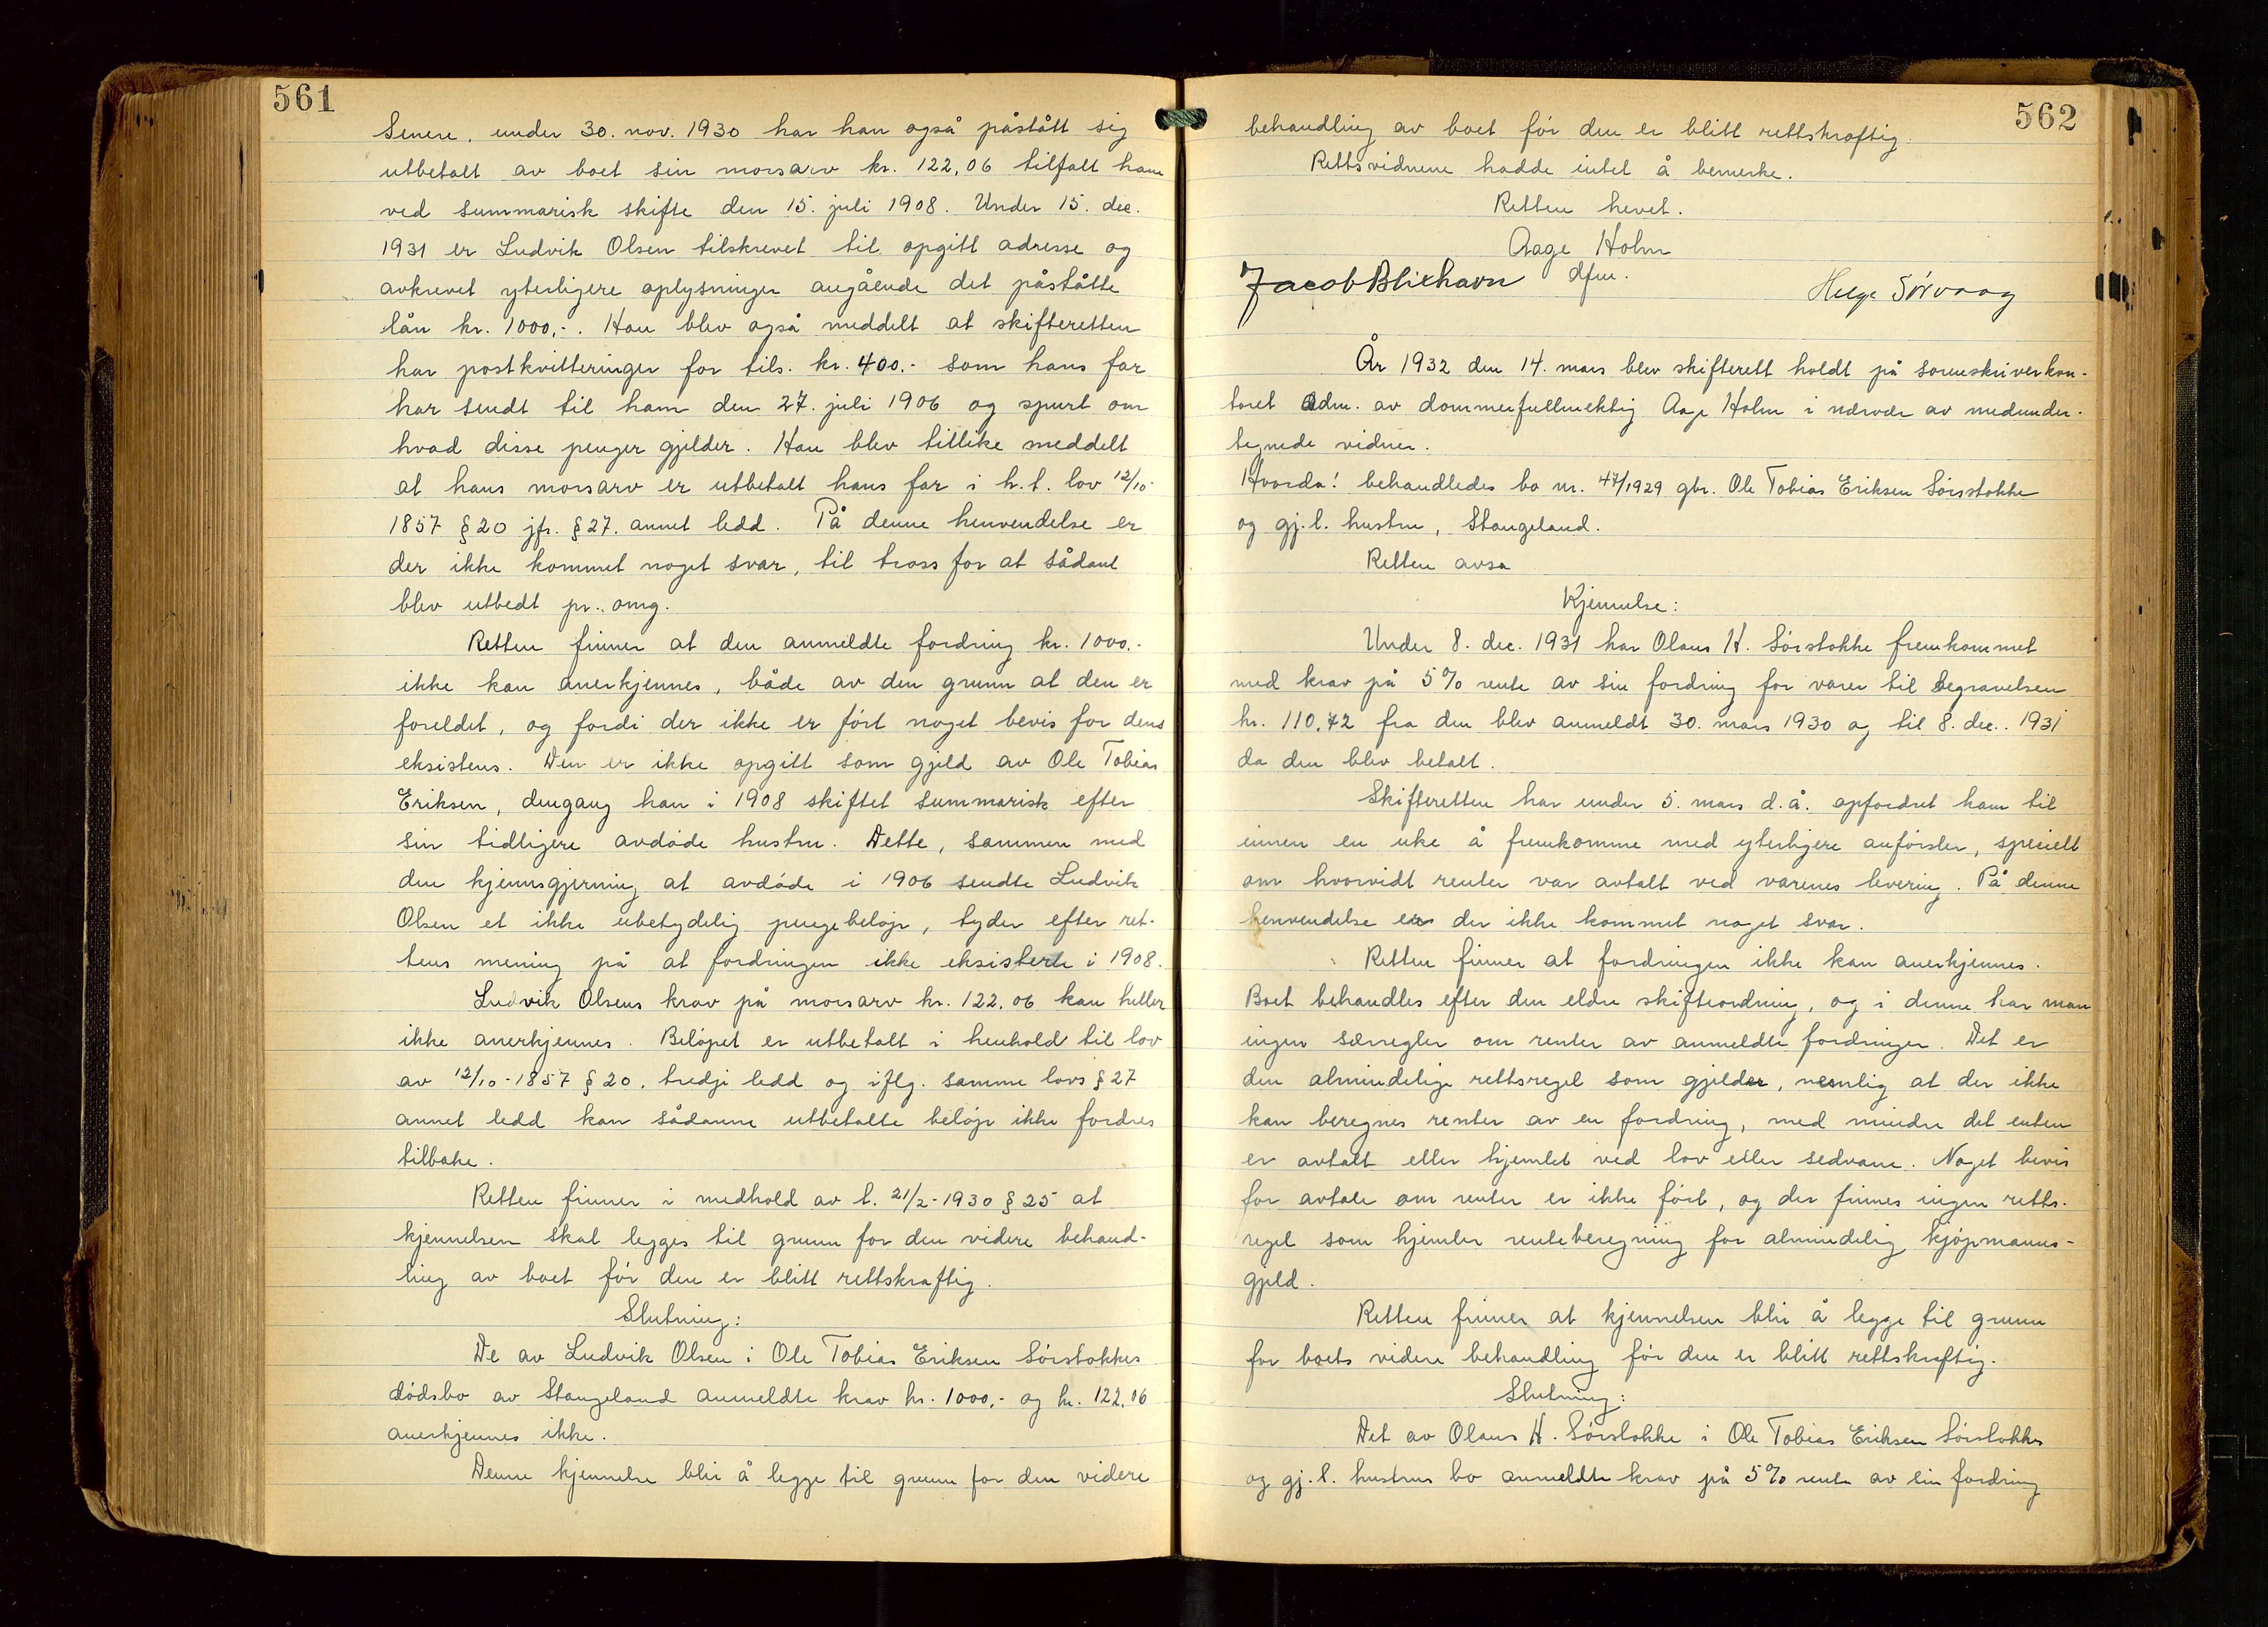 561
Senere, under 30. nov. 1930 har han også påstått sig
utbetalt av boet sin morsarv kr. 122,06 tilfalt ham
ved summarisk skifte den 15. juli 1908. Under 15. dec.
1931 er Ludvik Olsen tilskrevet til opgitt adresse og
avkrevet yterligere oplysninger angående det påståtte
lån kr. 1000,-. Han blev også meddelt at skifteretten
har postkvitteringer for tils. kr. 400.- som hans far
har sendt til ham den 27. juli 1906 og spurt om
hvad disse penger gjelder. Han blev tillike meddelt
at hans morsarv er utbetalt hans far i h.t. lov 12/10-
1857 § 20 jfr. § 27. annet ledd. På denne henvendelse er
der ikke kommet noget svar, til tross for at sådant
blev utbedt pr. omg.
Retten finner at den anmeldte fordring kr. 1000.-
ikke kan anerkjennes, både av den grunn at den er
foreldet, og fordi der ikke er ført noget bevis for dens
eksistens. Den er ikke opgitt som gjeld av Ole Tobias
Eriksen, dengang han i 1908 skiftet summarisk efter
sin tidligere avdøde hustru. Dette, sammen med
den kjensgjerning at avdøde i 1906 sendte Ludvik
Olsen et ikke ubetydelig pengebeløp, tyder efter ret-
tens mening på at fordringen ikke eksisterte i 1908.
Ludvik Olsens krav på morsarv kr. 122,06 kan heller
ikke anerkjennes. Beløpet er utbetalt i henhold til lov
av 12/10-1857 § 20, tredje ledd og iflg. samme lovs § 27
annet ledd kan sådanne utbetalte beløp ikke fordres
tilbake.
Retten finner i medhold av l. 21/2-1930 § 25 at
kjennelsen skal legges til grunn for den videre behand-
ling av boet før den er blitt rettskraftig.
Slutning:
De av Ludvik Olsen i Ole Tobias Eriksen Sørstokkes
dødsbo av Stangeland anmeldte krav kr. 1000,- og kr. 122,06
anerkjennes ikke.
Denne kjennelse blir å legge til grunn for den videre
562
behandling av boet før den er blitt rettskraftig.
Rettsvidnene hadde intet å bemerke.
Retten hevet.
Aage Holm
dfm.
Jacob Blikhavn
Helge Sørvaag
År 1932 den 14. mars blev skifterett holdt på sorenskriverkon-
toret adm. av dommerfullmektig Aage Holm i nærvær av medunder-
tegnede vidner.
Hvorda! behandledes bo nr. 47/1929 gbr. Ole Tobias Eriksen Sørstokke
og gj.l. hustru, Stangeland.
Retten avsa
Kjennelse:
Under 8. dec. 1931 har Olaus H. Sørstokke fremkommet
med krav på 5% rente av sin fordring for varer til begravelsen
kr. 110,72 fra den blev anmeldt 30. mars 1930 og til 8. dec. 1931
da den blev betalt.
Skifteretten har under 5. mars d.å. opfordret ham til
innen en uke å fremkomme med yterligere anførsler, specielt
om hvorvidt renter var avtalt ved varenes levering. På denne
henvendelse er der ikke kommet noget svar.
Retten finner at fordringen ikke kan anerkjennes.
Boet behandles efter den eldre skifteordning, og i denne har man
ingen særregler om renter av anmeldte fordringer. Det er
den almindelige rettsregel som gjelder, nemlig at der ikke
kan beregnes renter av en fordring, med mindre det enten
er avtalt eller hjemlet ved lov eller sedvane. Noget bevis
for avtale om renter er ikke ført, og der finnes ingen retts-
regel som hjemler renteberegning for almindelig kjøpmanns-
gjeld.
Retten finner at kjennelsen blir å legge til grunn
for boets videre behandling før den er blitt rettskraftig.
Slutning:
Det av Olaus H. Sørstokke i Ole Tobias Eriksen Sørstokkes
og gj.l. hustrus bo anmeldte krav på 5% rente av sin fordring